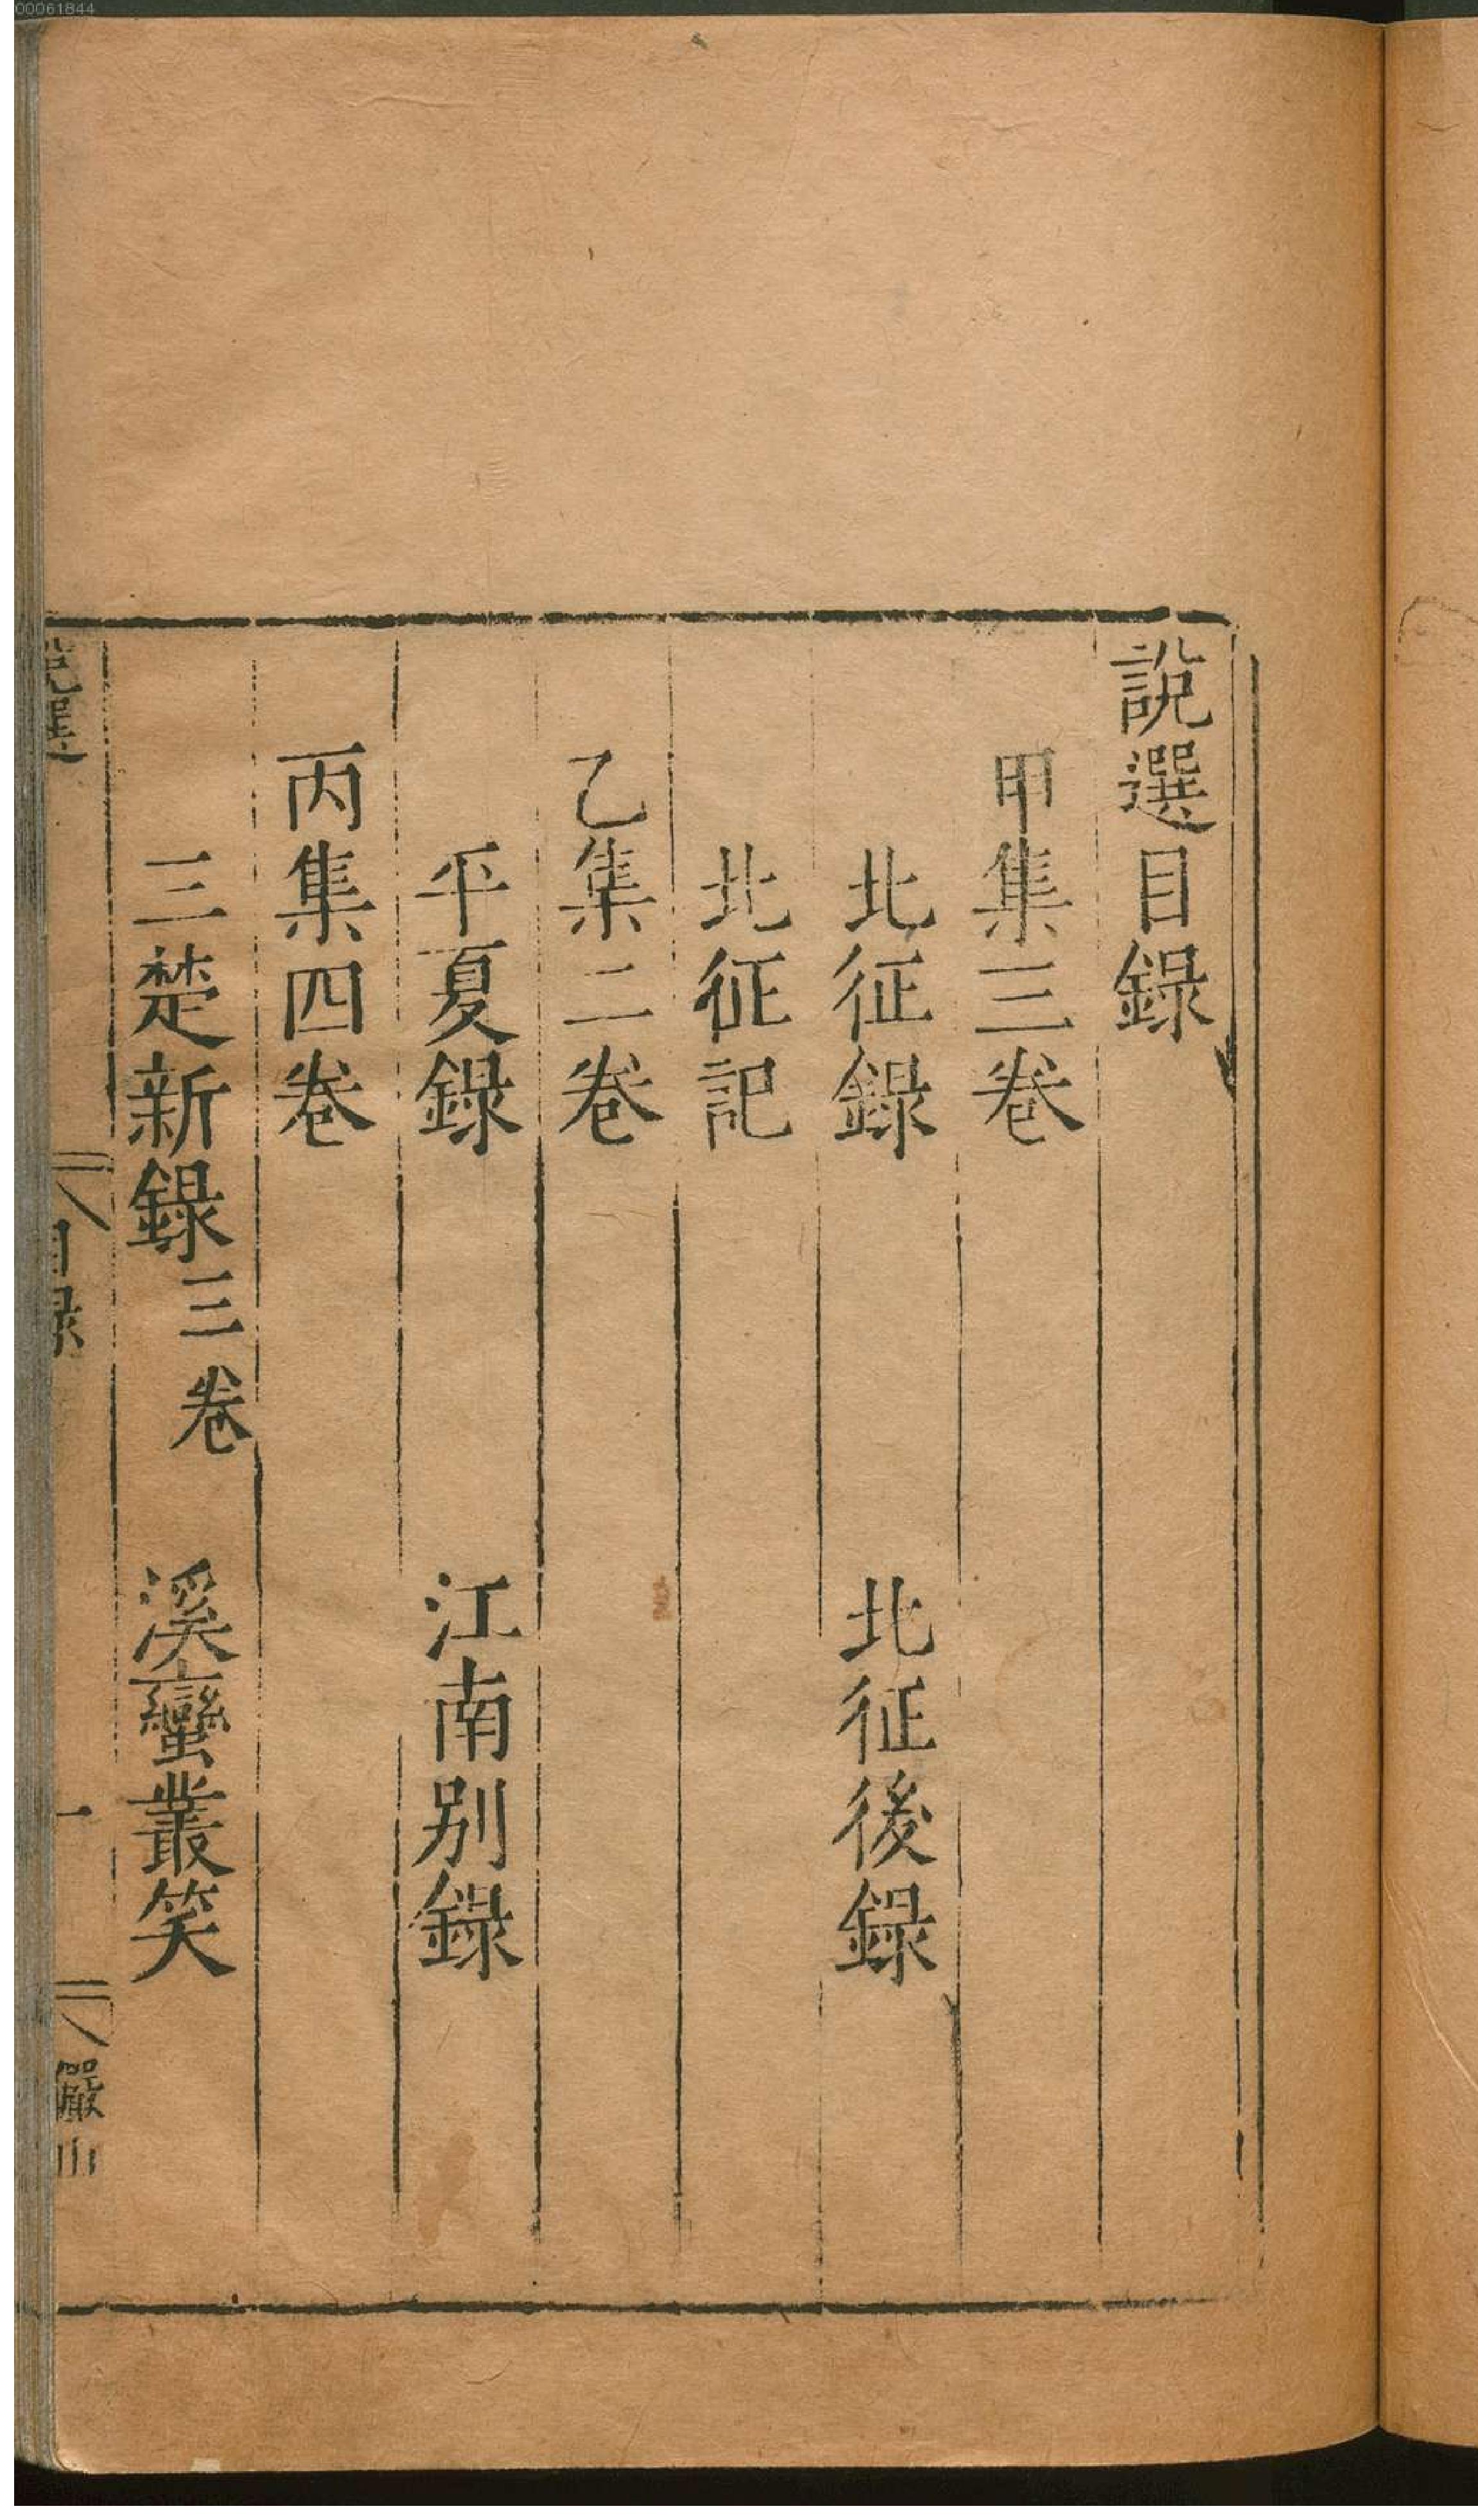 00061844
說選目錄
甲集三卷
北征錄　北征後錄
北征記
乙集二卷
平夏錄　江南別錄
丙集四卷
三楚新錄三卷　溪蠻叢笑
說選　目録　一　儼山